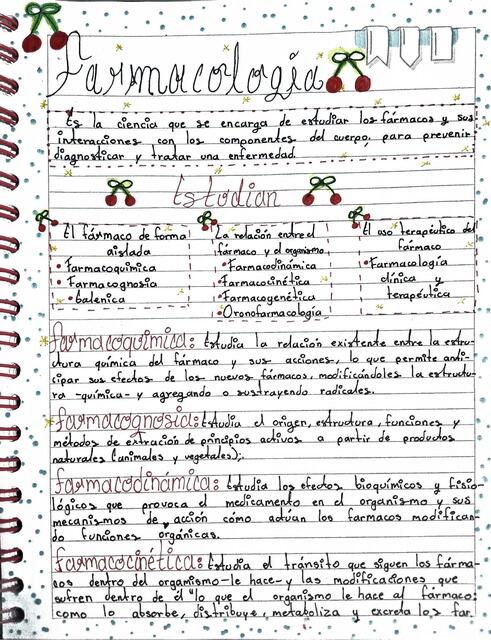 Farmacología
Es la ciencia que se encarga de estudiar los fármacos y sus
interacciones con los componentes del cuerpo, para prevenir
diagnosticar y tratar una enfermedad.
Estudian
El fármaco de forma
aislada
• Farmacoquímica
• Farmacognosia
• Galenica
La relación entre el
fármaco y el organismo
• Farmacodinámica
• Farmacocinética
• Farmacogenética
• Oronofarmacología
El uso terapeútico del
fármaco
• Farmacología
clínica y
terapeútica
farmacoquímica: Estudia la relación existente entre la estru-
ctura química del fármaco y sus acciones, lo que permite anti-
cipar sus efectos de los nuevos fármacos, modificándoles la estructu-
ra -química- y agregando o sustrayendo radicales.
farmacognosia: Estudia el origen, estructura, funciones y
métodos de extración de principios activos a partir de productos
naturales (animales y vegetales);
farmacodinámica: Estudia los efectos bioquímicos y fisio-
lógicos que provoca el medicamento en el organismo y sus
mecanismos de acción cómo actúan los farmacos modifican-
do funciones orgánicas.
farmacocinética: Estudia el tránsito que siguen los fárma-
cos dentro del organismo-le hace- y las modificaciones que
sufren dentro de él "lo que el organismo le hace al fármaco:
como lo absorbe, distribuye, metaboliza y excreta los far.